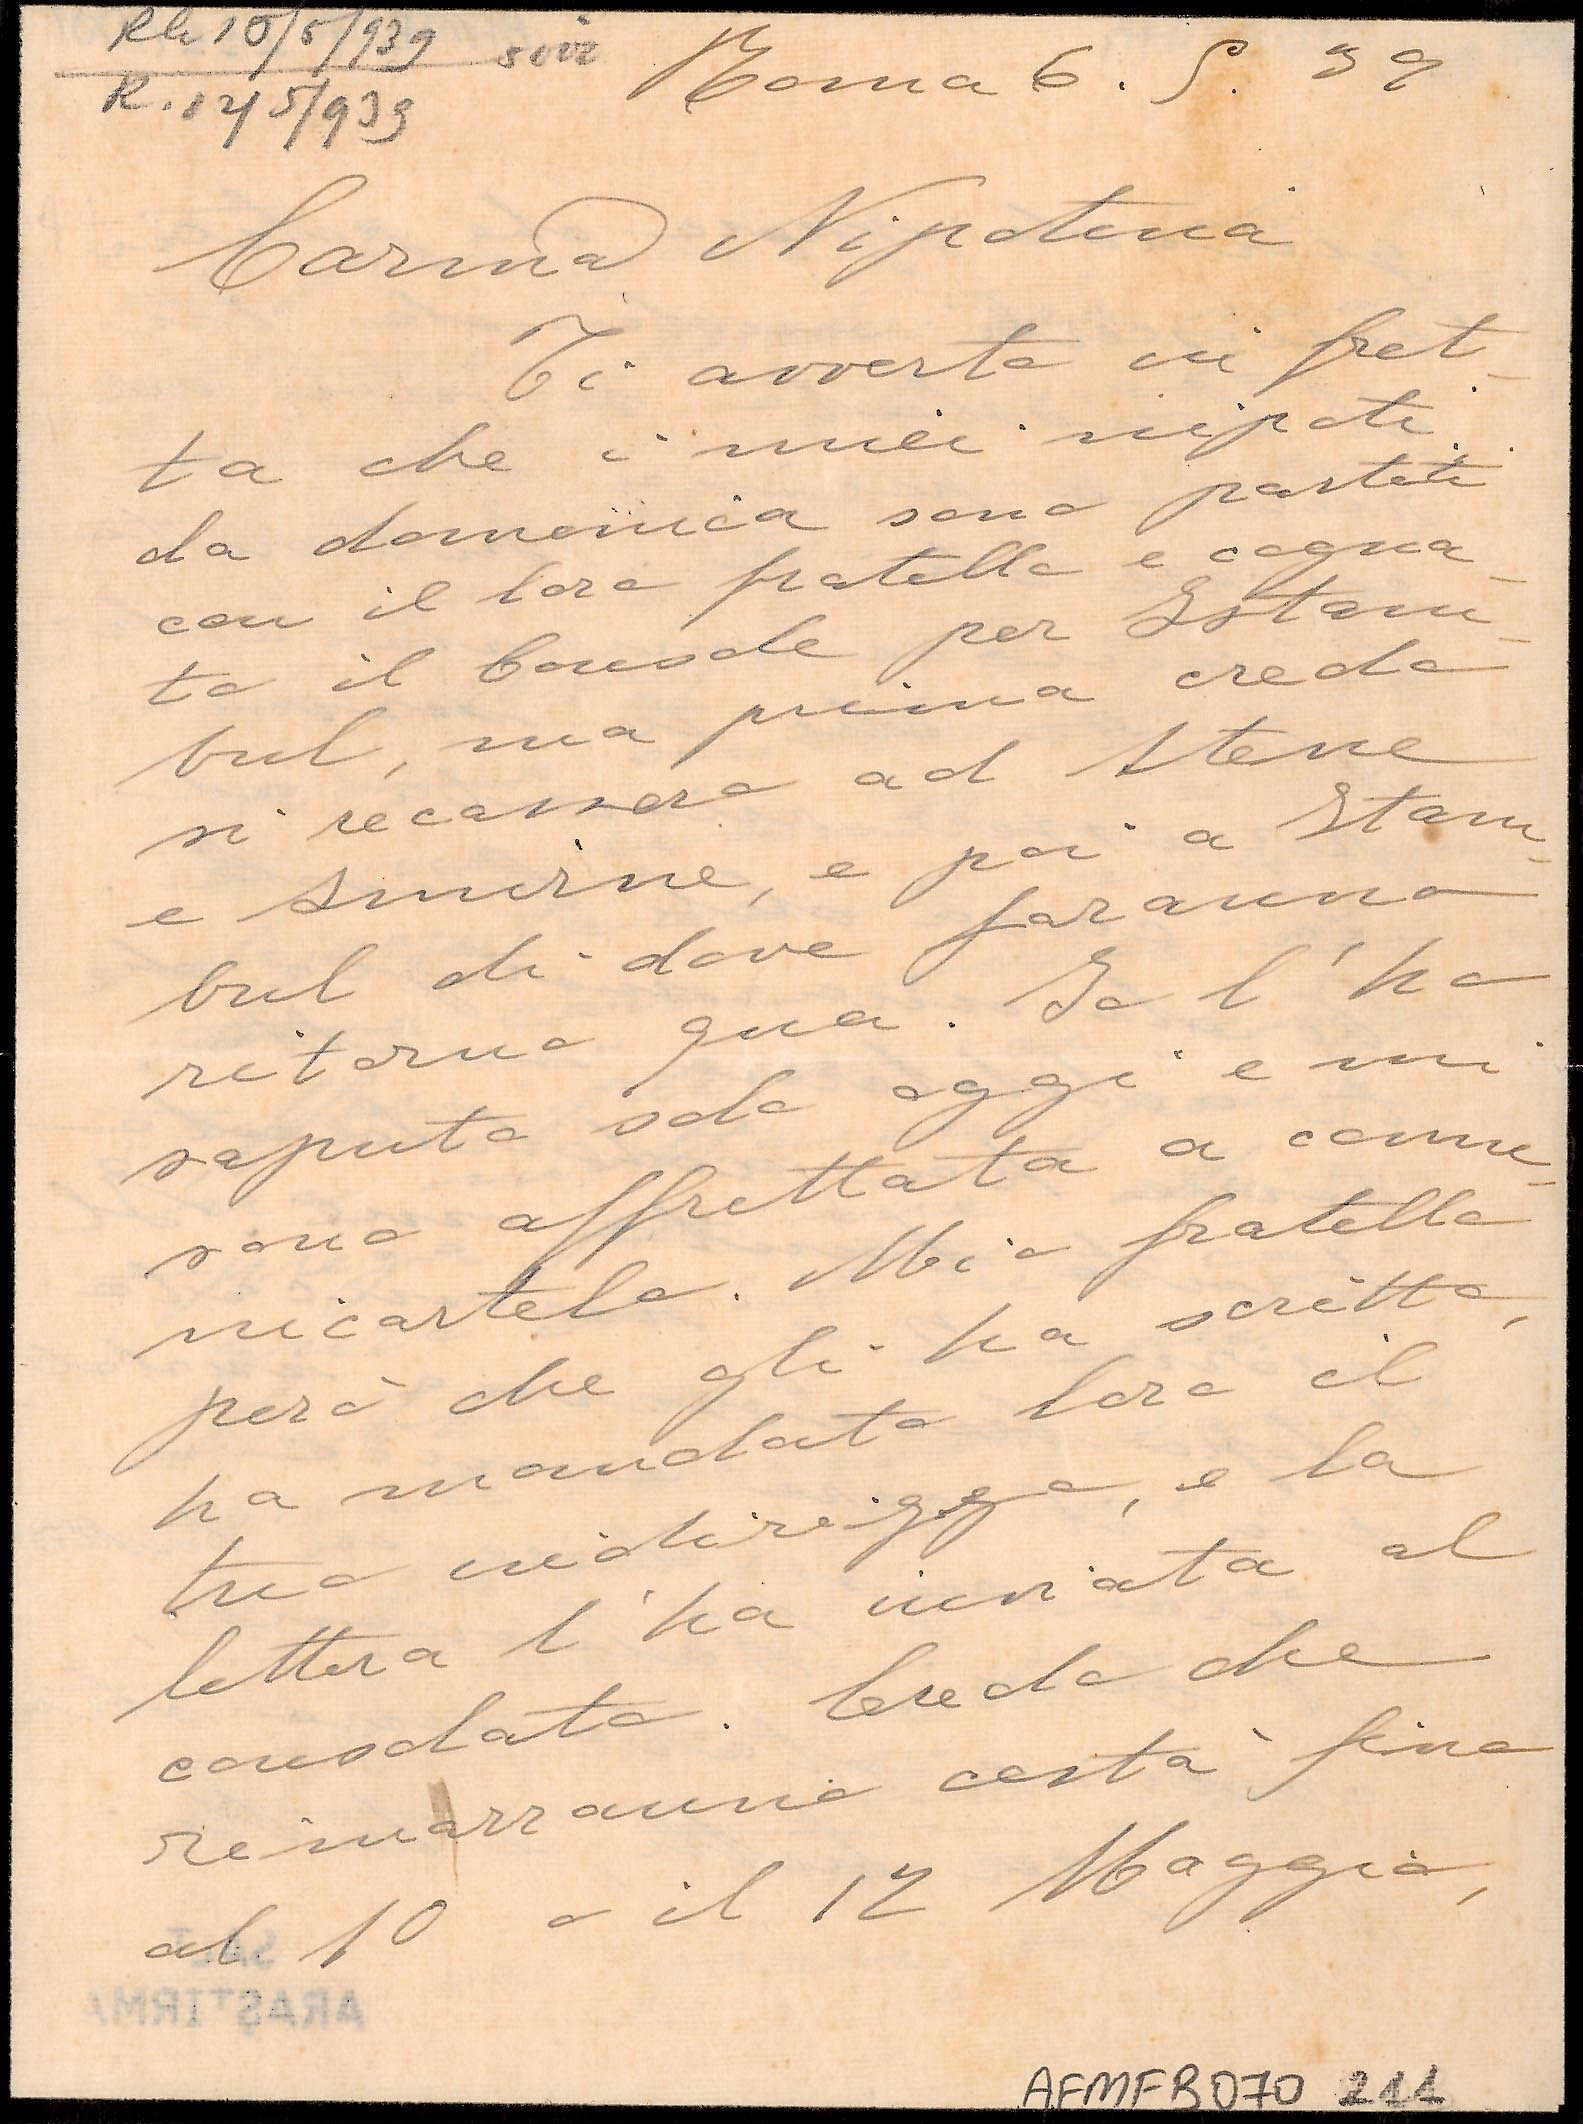 Rh 10/5/939 soir
R. 12/5/939
Roma 6. 5. 39
Carina Nipotina
Ti avverto in fret-
ta che i miei nipoti
da domenica sono partiti
con il loro fratello e cogna-
to il Console per Istam-
bul, ma prima credo
si recassero ad Atene
e Smirne, e poi a Istam-
bul di dove faranno
ritorno qua. Io l'ho
saputo solo oggi e mi
sono affrettata a comu-
nicartelo. Mio fratello
però che gli ha scritto,
ha mandato loro il
tuo indirizzo, e la
lettera l'ha inviata al
consolato. Credo che
rimarranno costà fino
al 10 o il 12 Maggio,
SALT
ARAŞTIRMA
AFMFB070 211